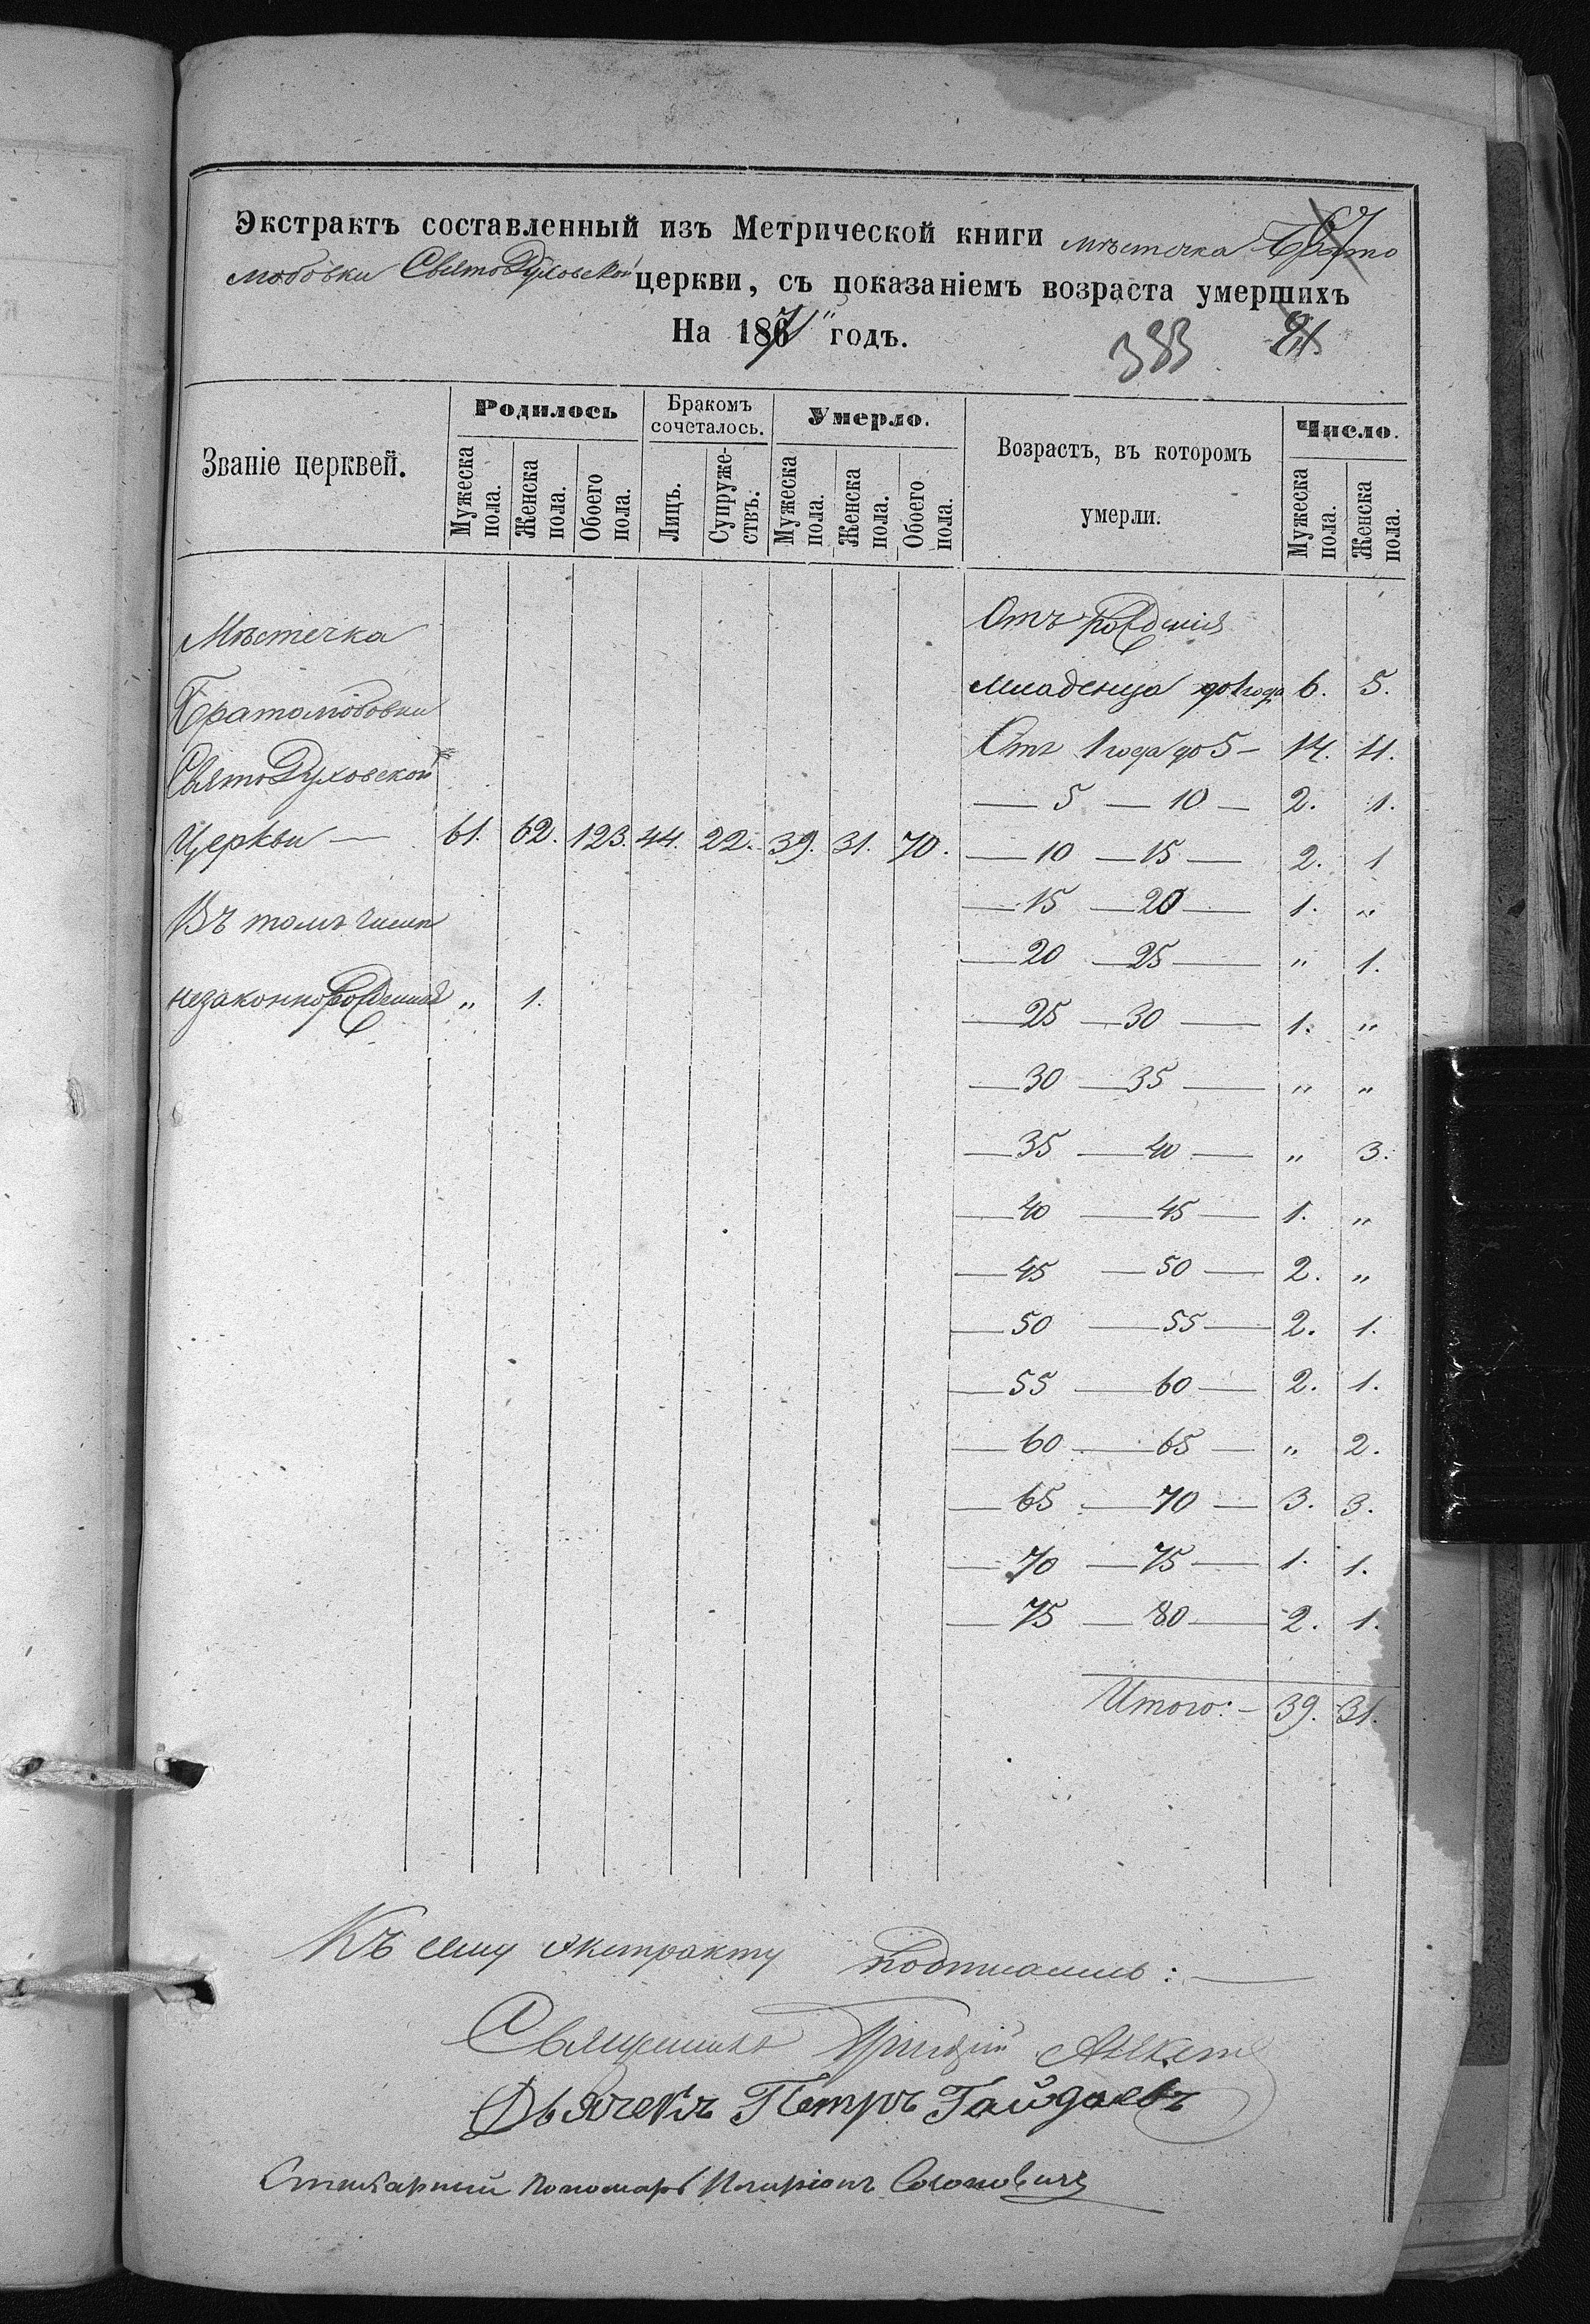 Экстрактъ составленный изъ Метрической книги мѣстечка Брато
любовки СвятоДуховской церкви, съ показаніемъ возраста умершихъ
На 1871 годъ.
383
Званіе церквей.
Родилось
Бракомъ сочеталось.
Умерло.
Возрастъ, въ которомъ умерли.
Число.
Мужеска пола.
Женска пола.
Обоего пола.
Лицъ.
Супруже-ствъ.
Мужеска пола.
Женска пола.
Обоего пола.
Мужеска пола.
Женска пола.
Мѣстечка
Братолюбовки
СвятоДуховской
Церкви — 61. 62. 123. 44. 22. 39. 31. 70.
Въ томъ числѣ
незаконнорожденныхъ „ 1.
Отъ рожденія
младенца до 1 года 6. 5.
Отъ 1 года до 5 — 14. 11.
— 5 — 10 — 2. 1.
— 10 — 15 — 2. 1
— 15 — 20 — 1. „
— 20 — 25 — „ 1.
— 25 — 30 — 1. „
— 30 — 35 — „ „
— 35 — 40 — „ 3.
— 40 — 45 — 1. „
— 45 — 50 — 2. „
— 50 — 55 — 2. 1.
— 55 — 60 — 2. 1.
— 60 — 65 — „ 2.
— 65 — 70 — 3. 3.
— 70 — 75 — 1. 1.
— 75 — 80 — 2. 1.
Итого: — 39. 31.
Къ сему экстракту подписались: —
Священникъ
Дьячекъ Петръ Гайдаевъ
Пономарь Иларіонъ Солоновичъ